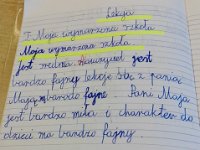 Lekcja
T. Moja wymarzona szkoła
Moja wymarzona szkoła
jest średnia nauczyciel jest
bardzo fajny lekcje są z panią
Mają bardzo fajne Pani Maja
jest bardzo miła i charakter do
dzieci ma bardzo fajny